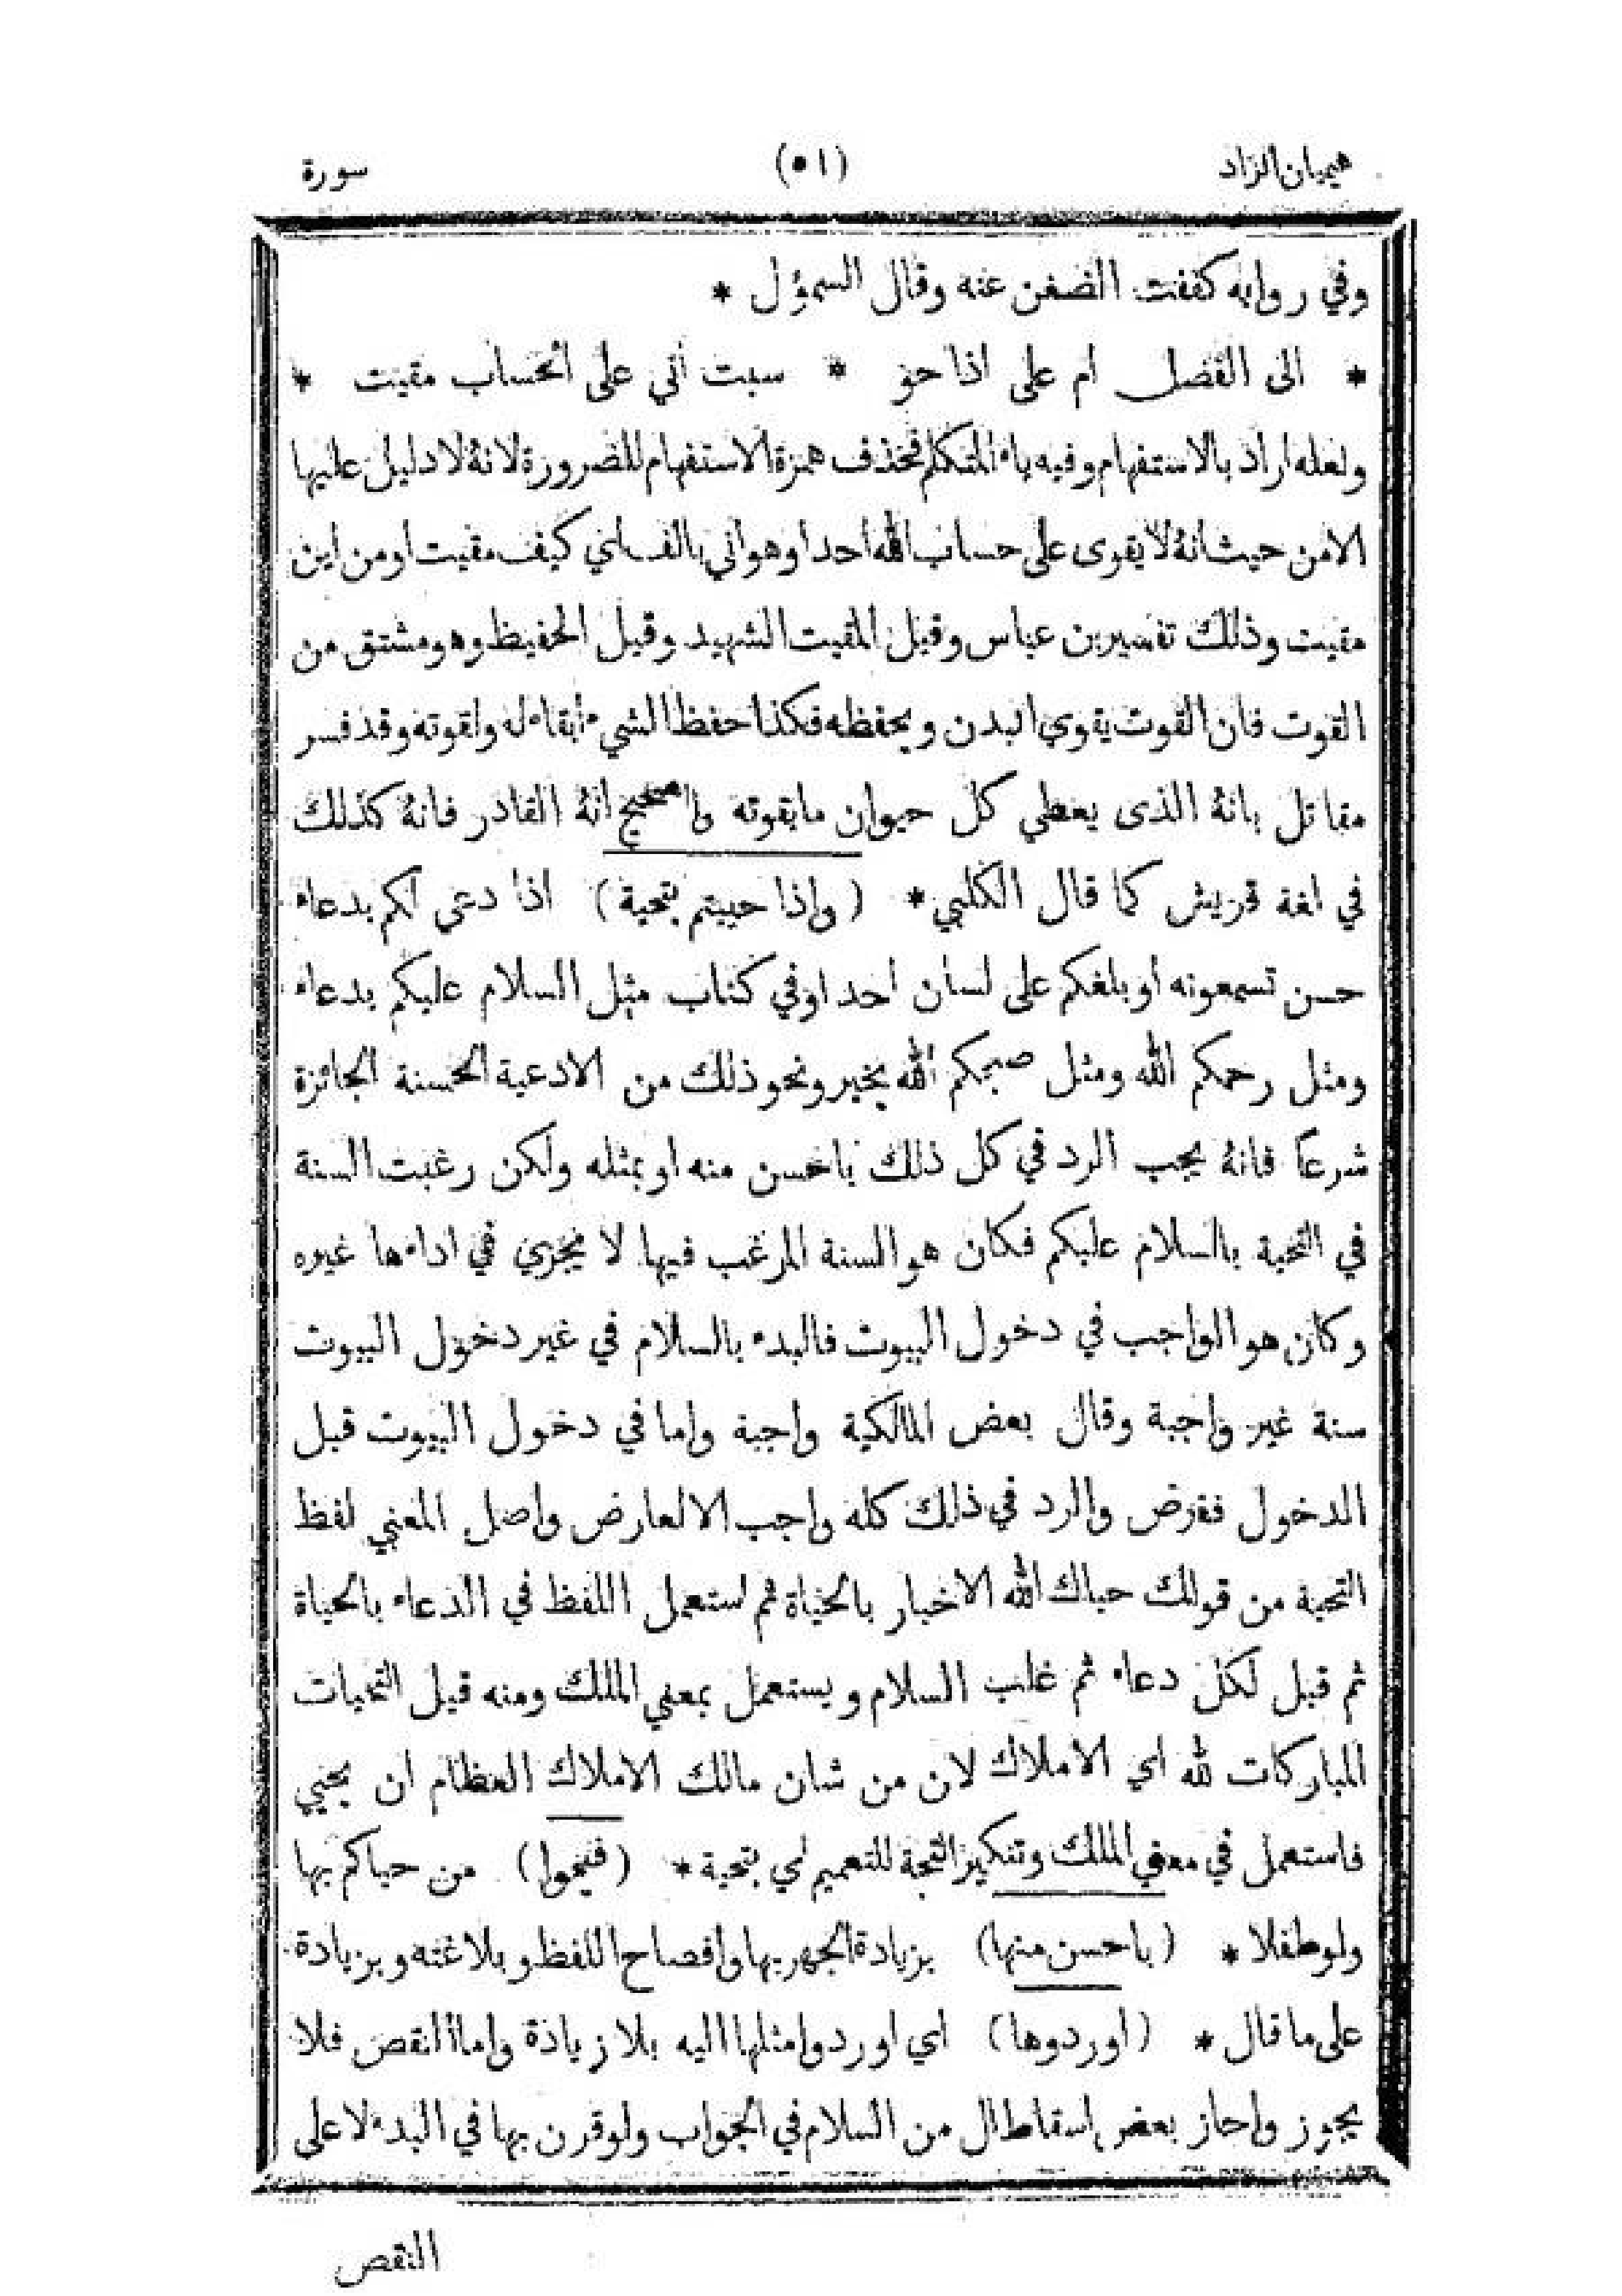 هيميان الزاد (٥١) سورة
وفي رواية كففت الضغن عنه وقال السمؤل *
* الى الفضل ام على اذا حو * سبت أني على الحساب مقيت *
ولعله اراد بالاستفهام وفيه ياء المتكلم فحذف همزة الاستفهام للضرورة لانهُ لا دليل عليها
الا من حيث انهُ لا يقوى على حساب الله احد او هو اني بالف اني كيف مقيت او من اين
مقيت وذلك تفسير بن عباس وقيل المقيت الشهيد وقيل الحفيظ وهو مشتق من
القوت فان القوت يقوي البدن ويحفظه فكذا حفظ الشيء أبقاء له واقوته وقد فسر
مقاتل بانهُ الذى يعطي كل حيوان ما يقوته والصحيح انهُ القادر فانهُ كذلك
في لغة قريش كما قال الكلبي * (واذا حييتم بتحية) اذا دعى لكم بدعاء
حسن تسمعونه أو بلغكم على لسان احد او في كتاب مثل السلام عليكم بدعاء
ومثل رحمكم الله ومثل صبحكم الله بخير ونحو ذلك من الادعية الحسنة الجائزة
شرعا فانهُ يجب الرد في كل ذلك باحسن منه او بمثله ولكن رغبت السنة
في التحية بالسلام عليكم فكان هو السنة المرغب فيها لا يجزي في اداءها غيره
وكان هو الواجب في دخول البيوت فالبدء بالسلام في غير دخول البيوت
سنة غير واجبة وقال بعض المالكية واجبة واما في دخول البيوت قبل
الدخول ففرض والرد في ذلك كله واجب الا لعارض واصل المعني لفظ
التحية من قولك حياك الله الاخبار بالحياة ثم استعمل اللفظ في الدعاء بالحياة
ثم قيل لكل دعاء ثم غلب السلام ويستعمل بمعني الملك ومنه قيل التحيات
المباركات لله اي الاملاك لان من شان مالك الاملاك العظام ان يحيي
فاستعمل في معني الملك وتنكير التحية للتعميم اي بتحية * (فحيوا) من حياكم بها
ولو طفلا * (باحسن منها) بزيادة الجهر بها وافصاح اللفظ وبلاغته وبزيادة
على ما قال * (او ردوها) اي او ردوا مثلها اليه بلا زيادة واما النقص فلا
يجوز واجاز بعض اسقاط ال من السلام في الجواب ولو قرن بها في البدء لا على
النقص